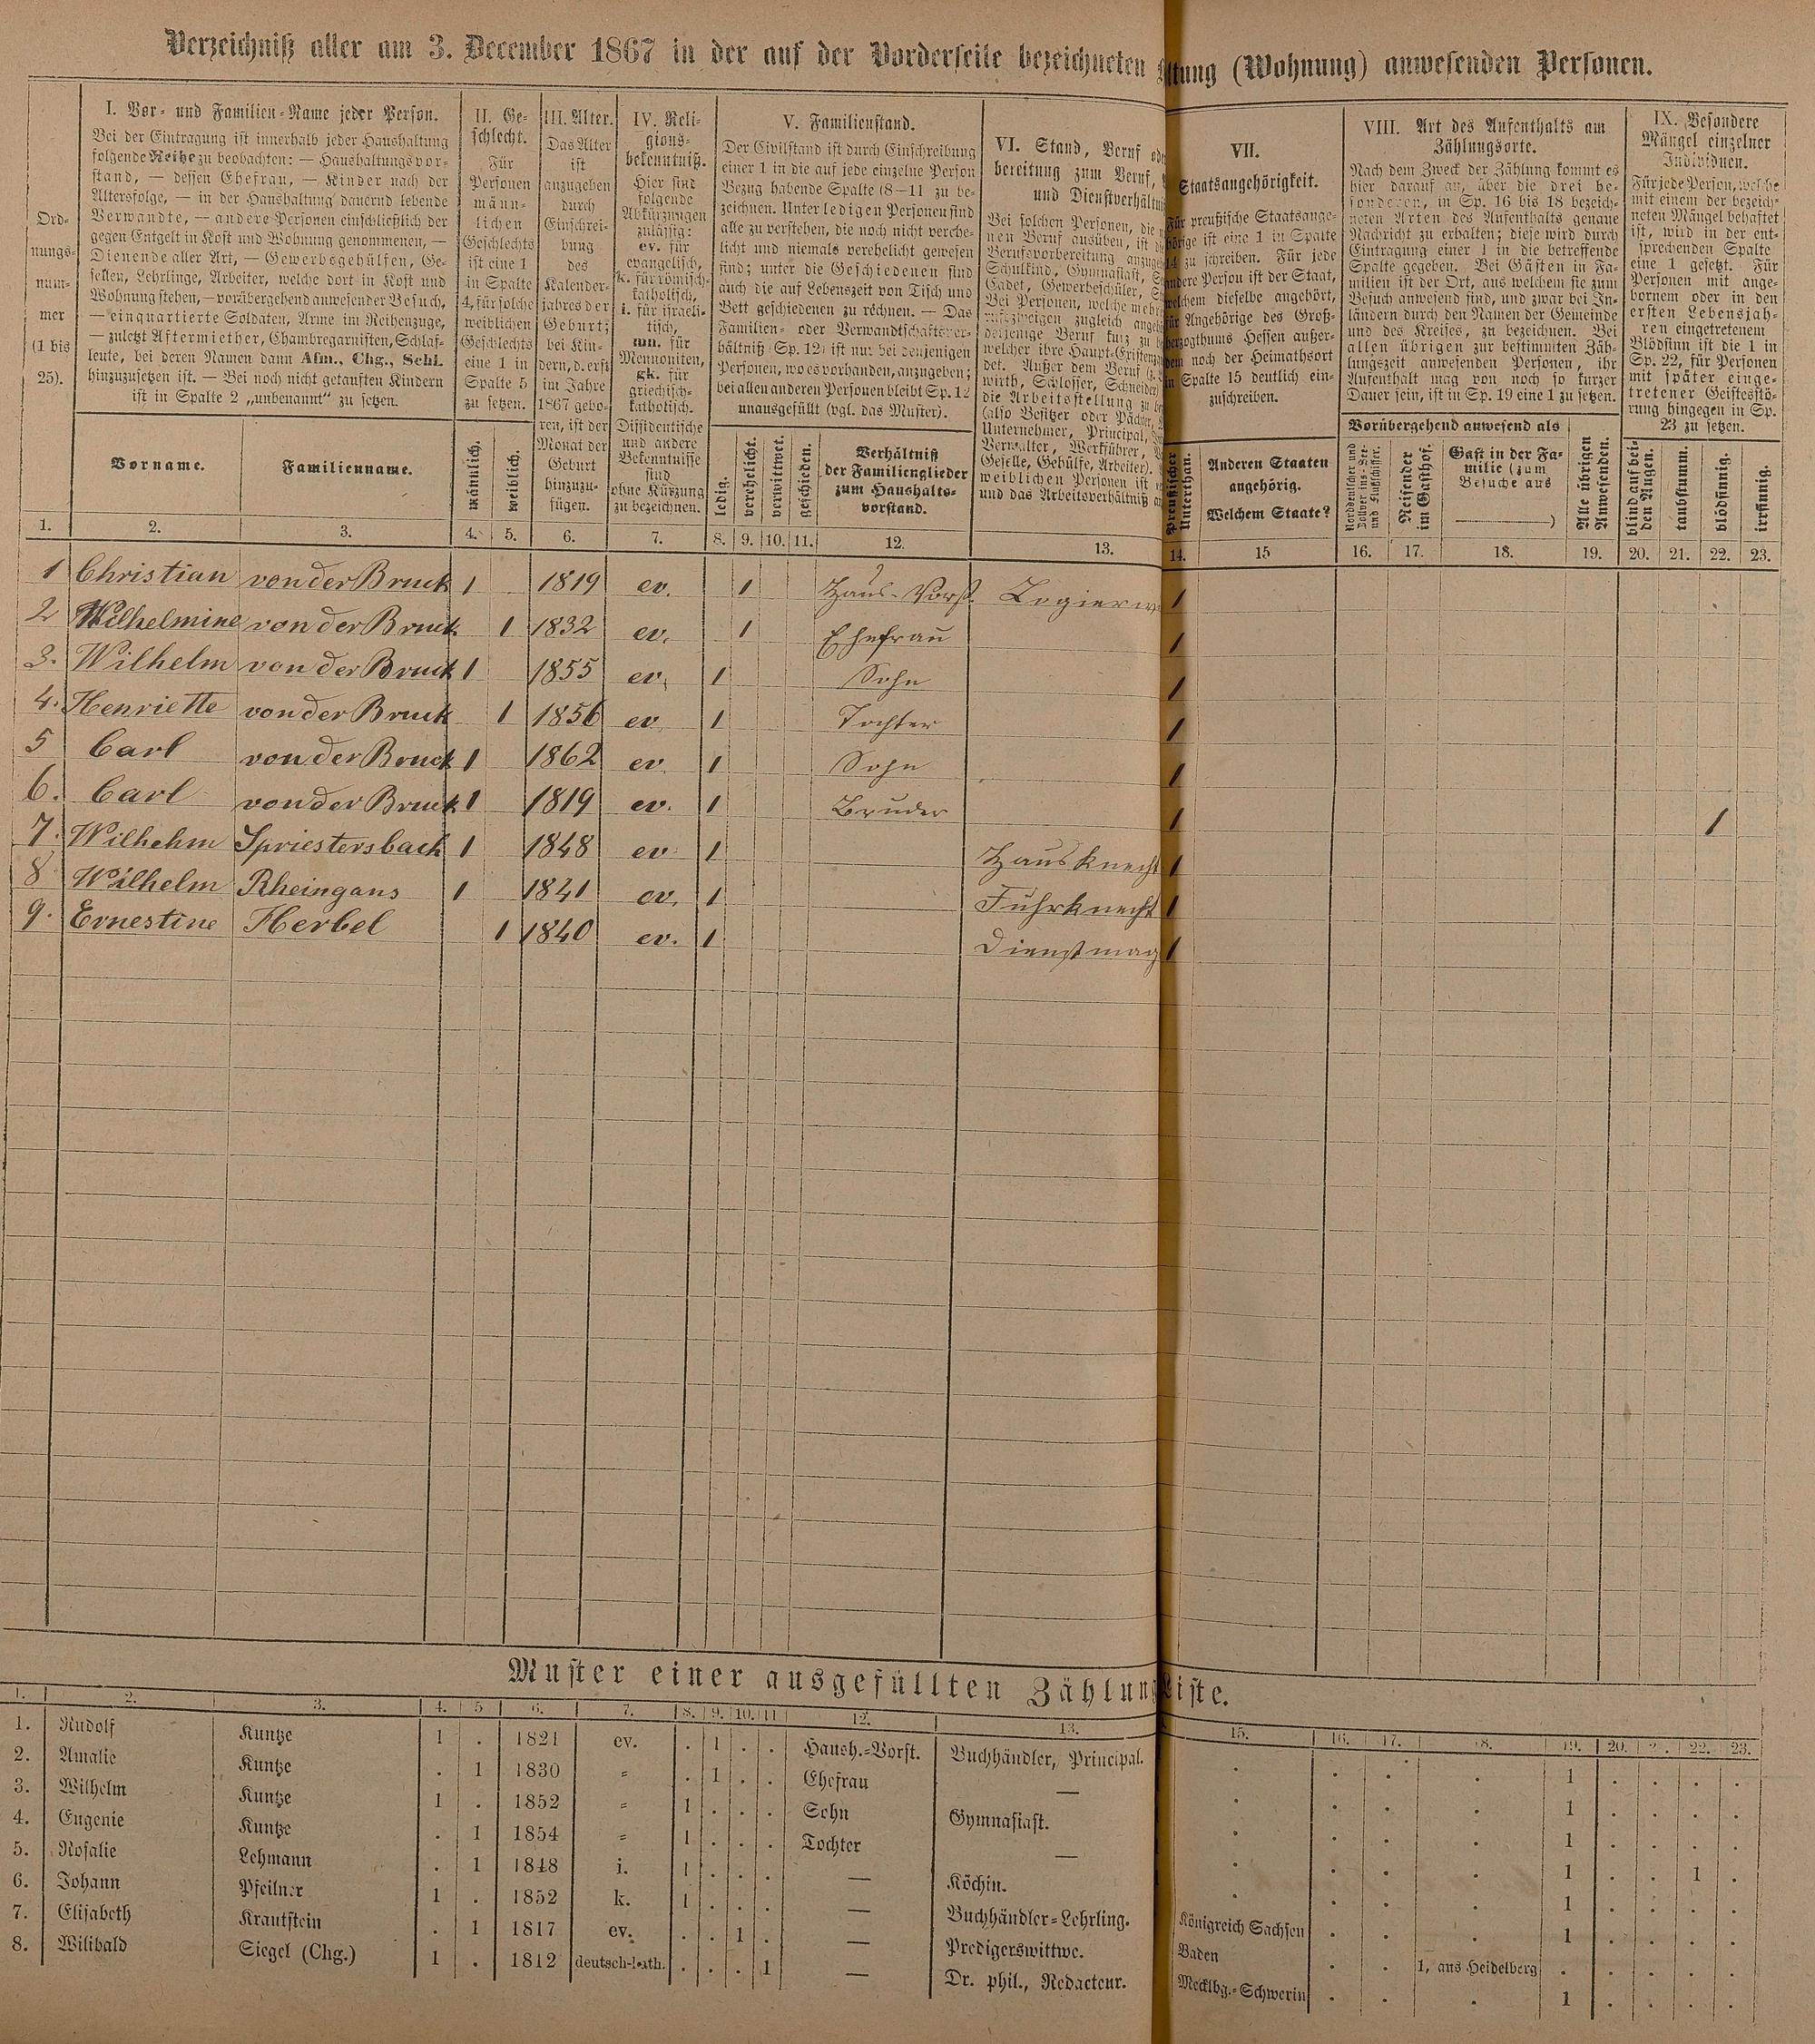 Verzeichniß aller am 3. December 1867 in der auf der Vorderseite bezeichneten ltung (Wohnung) anwesenden Personen.
Ord-
nungs-
num-
mer
(1 bis
25).
I. Vor- und Familien-Name jeder Person.
Bei der Eintragung ist innerhalb jeder Haushaltung
folgende Reihe zu beobachten: — Haushaltungsvor-
stand, — dessen Ehefrau, — Kinder nach der
Altersfolge, — in der Haushaltung dauernd lebende
Verwandte, — andere Personen einschließlich der
gegen Entgelt in Kost und Wohnung genommenen, —
Dienende aller Art, — Gewerbsgehülfen, Ge-
sellen, Lehrlinge, Arbeiter, welche dort in Kost und
Wohnung stehen, — vorübergehend anwesender Besuch,
— einquartierte Soldaten, Arme im Reihenzuge,
— zuletzt Aftermiether, Chambregarnisten, Schlaf-
leute, bei deren Namen dann Afm., Chg., Schl.
hinzuzusetzen ist. — Bei noch nicht getauften Kindern
ist in Spalte 2 „unbenannt“ zu setzen.
Vorname.
Familienname.
II. Ge-
schlecht.
Für
Personen
männ-
lichen
Geschlechts
ist eine 1
in Spalte
4, für solche
weiblichen
Geschlechts
eine 1 in
Spalte 5
zu setzen.
männlich.
weiblich.
III. Alter.
Das Alter
ist
anzugeben
durch
Einschrei-
bung
des
Kalender-
jahres der
Geburt;
bei Kin-
dern, d. erst
im Jahre
1867 gebo-
ren, ist der
Monat der
Geburt
hinzuzu-
fügen.
IV. Reli-
gions-
bekenntniß.
Hier sind
folgende
Abkürzungen
zulässig:
ev. für
evangelisch,
k. für römisch-
katholisch,
i. für israeli-
tisch,
mn. für
Mennoniten,
gk. für
griechisch-
katholisch.
Dissidentische
und andere
Bekenntnisse
sind
ohne Kürzung
zu bezeichnen.
V. Familienstand.
Der Civilstand ist durch Einschreibung
einer 1 in die auf jede einzelne Person
Bezug habende Spalte (8—11 zu be-
zeichnen. Unter ledigen Personen sind
alle zu verstehen, die noch nicht verehe-
licht und niemals verehelicht gewesen
sind; unter die Geschiedenen sind
auch die auf Lebenszeit von Tisch und
Bett geschiedenen zu rechnen. — Das
Familien- oder Verwandtschaftsver-
hältniß (Sp. 12) ist nur bei denjenigen
Personen, wo es vorhanden, anzugeben;
bei allen anderen Personen bleibt Sp. 12
unausgefüllt (vgl. das Muster).
ledig.
verehelicht.
verwittwet.
geschieden.
Verhältniß
der Familienglieder
zum Haushalts-
vorstand.
VI. Stand, Beruf
bereitung zum Beruf,
und Dienstverhältn
Bei solchen Personen, die
nen Beruf ausüben, ist
Berufsvorbereitung
Schulkind, Gymnasiast,
Cadet, Gewerbeschüler,
Bei Personen, welche
rufszweigen zugleich
derjenige Beruf kurz zu
welcher ihre Haupt-Existenz
det. Außer dem Beruf
wirth, Schlosser, Schneider
die Arbeitsstellung zu
(also Besitzer oder Pächter,
Unternehmer, Principal,
Verwalter, Werkführer,
Geselle, Gehülfe, Arbeiter).
weiblichen Personen ist
und das Arbeitsverhältniß
VII.
Staatsangehörigkeit.
Für preußische Staatsange-
hörige ist eine 1 in Spalte
14 zu schreiben. Für jede
andere Person ist der Staat,
welchem dieselbe angehört,
für Angehörige des Groß-
herzogthums Hessen außer-
dem noch der Heimathsort
in Spalte 15 deutlich ein-
zuschreiben.
Preußischer
Unterthan.
Anderen Staaten
angehörig.
Welchem Staate?
VIII. Art des Aufenthalts am
Zählungsorte.
Nach dem Zweck der Zählung kommt es
hier darauf an, über die drei be-
sonderen, in Sp. 16 bis 18 bezeich-
neten Arten des Aufenthalts genaue
Nachricht zu erhalten; diese wird durch
Eintragung einer 1 in die betreffende
Spalte gegeben. Bei Gästen in Fa-
milien ist der Ort, aus welchem sie zum
Besuch anwesend sind, und zwar bei In-
ländern durch den Namen der Gemeinde
und des Kreises, zu bezeichnen. Bei
allen übrigen zur bestimmten Zäh-
lungszeit anwesenden Personen, ihr
Aufenthalt mag von noch so kurzer
Dauer sein, ist in Sp. 19 eine 1 zu setzen.
Vorübergehend anwesend als
Norddeutscher und
Zollvereins-See-
und Flußschiffer.
Reisender
im Gasthof.
Gast in der Fa-
milie (zum
Besuche aus
———)
Alle übrigen
Anwesenden.
IX. Besondere
Mängel einzelner
Individuen.
Für jede Person, welche
mit einem der bezeich-
neten Mängel behaftet
ist, wird in der ent-
sprechenden Spalte
eine 1 gesetzt. Für
Personen mit ange-
bornem oder in den
ersten Lebensjah-
ren eingetretenem
Blödsinn ist die 1 in
Sp. 22, für Personen
mit später einge-
tretener Geistesstö-
rung hingegen in Sp.
23 zu setzen.
blind auf bei-
den Augen.
taubstumm.
blödsinnig.
irrsinnig.
1. 2. 3. 4. 5. 6. 7. 8. 9. 10. 11. 12. 13. 14. 15 16. 17. 18. 19. 20. 21. 22. 23.
1 Christian von der Bruck 1 1819 ev. 1 Haus-Vorst. Logierw 1
2 Wilhelmine von der Bruck 1 1832 ev. 1 Ehefrau 1
3. Wilhelm von der Bruck 1 1855 ev. 1 Sohn 1
4. Henriette von der Bruck 1 1856 ev. 1 Tochter 1
5 Carl von der Bruck 1 1862 ev. 1 Sohn 1
6. Carl von der Bruck 1 1819 ev. 1 Bruder 1 1
7. Wilhehm Spriestersbach 1 1848 ev 1 Hausknecht 1
8 Wilhelm Rheingans 1 1841 ev. 1 Fuhrknecht 1
9. Ernestine Herbel 1 1840 ev. 1 Dienstmag 1
Muster einer ausgefüllten Zählungsliste.
1. 2. 3. 4. 5 6. 7. 8. 9. 10. 11. 12. 13. 15. 16. 17. 18. 19. 20. 22. 23.
1. Rudolf Kuntze 1 . 1821 ev. . 1 . . Haush.-Vorst. Buchhändler, Principal. . . . . 1 . . . .
2. Amalie Kuntze . 1 1830 „ . 1 . . Ehefrau — . . . . 1 . . . .
3. Wilhelm Kuntze 1 . 1852 „ 1 . . . Sohn Gymnasiast. . . . . 1 . . . .
4. Eugenie Kuntze . 1 1854 „ 1 . . . Tochter — . . . . 1 . . 1 .
5. Rosalie Lehmann . 1 1848 i. 1 . . . — Köchin. . . . . 1 . . . .
6. Johann Pfeilner 1 . 1852 k. 1 . . . — Buchhändler-Lehrling. Königreich Sachsen . . . 1 . . . .
7. Elisabeth Krautstein . 1 1817 ev. . . 1 . — Predigerswittwe. Baden . . 1, aus Heidelberg . . . . .
8. Wilibald Siegel (Chg.) 1 . 1812 deutsch-kath. . . . 1 — Dr. phil., Redacteur. Mecklbg.-Schwerin . . . 1 . . . .